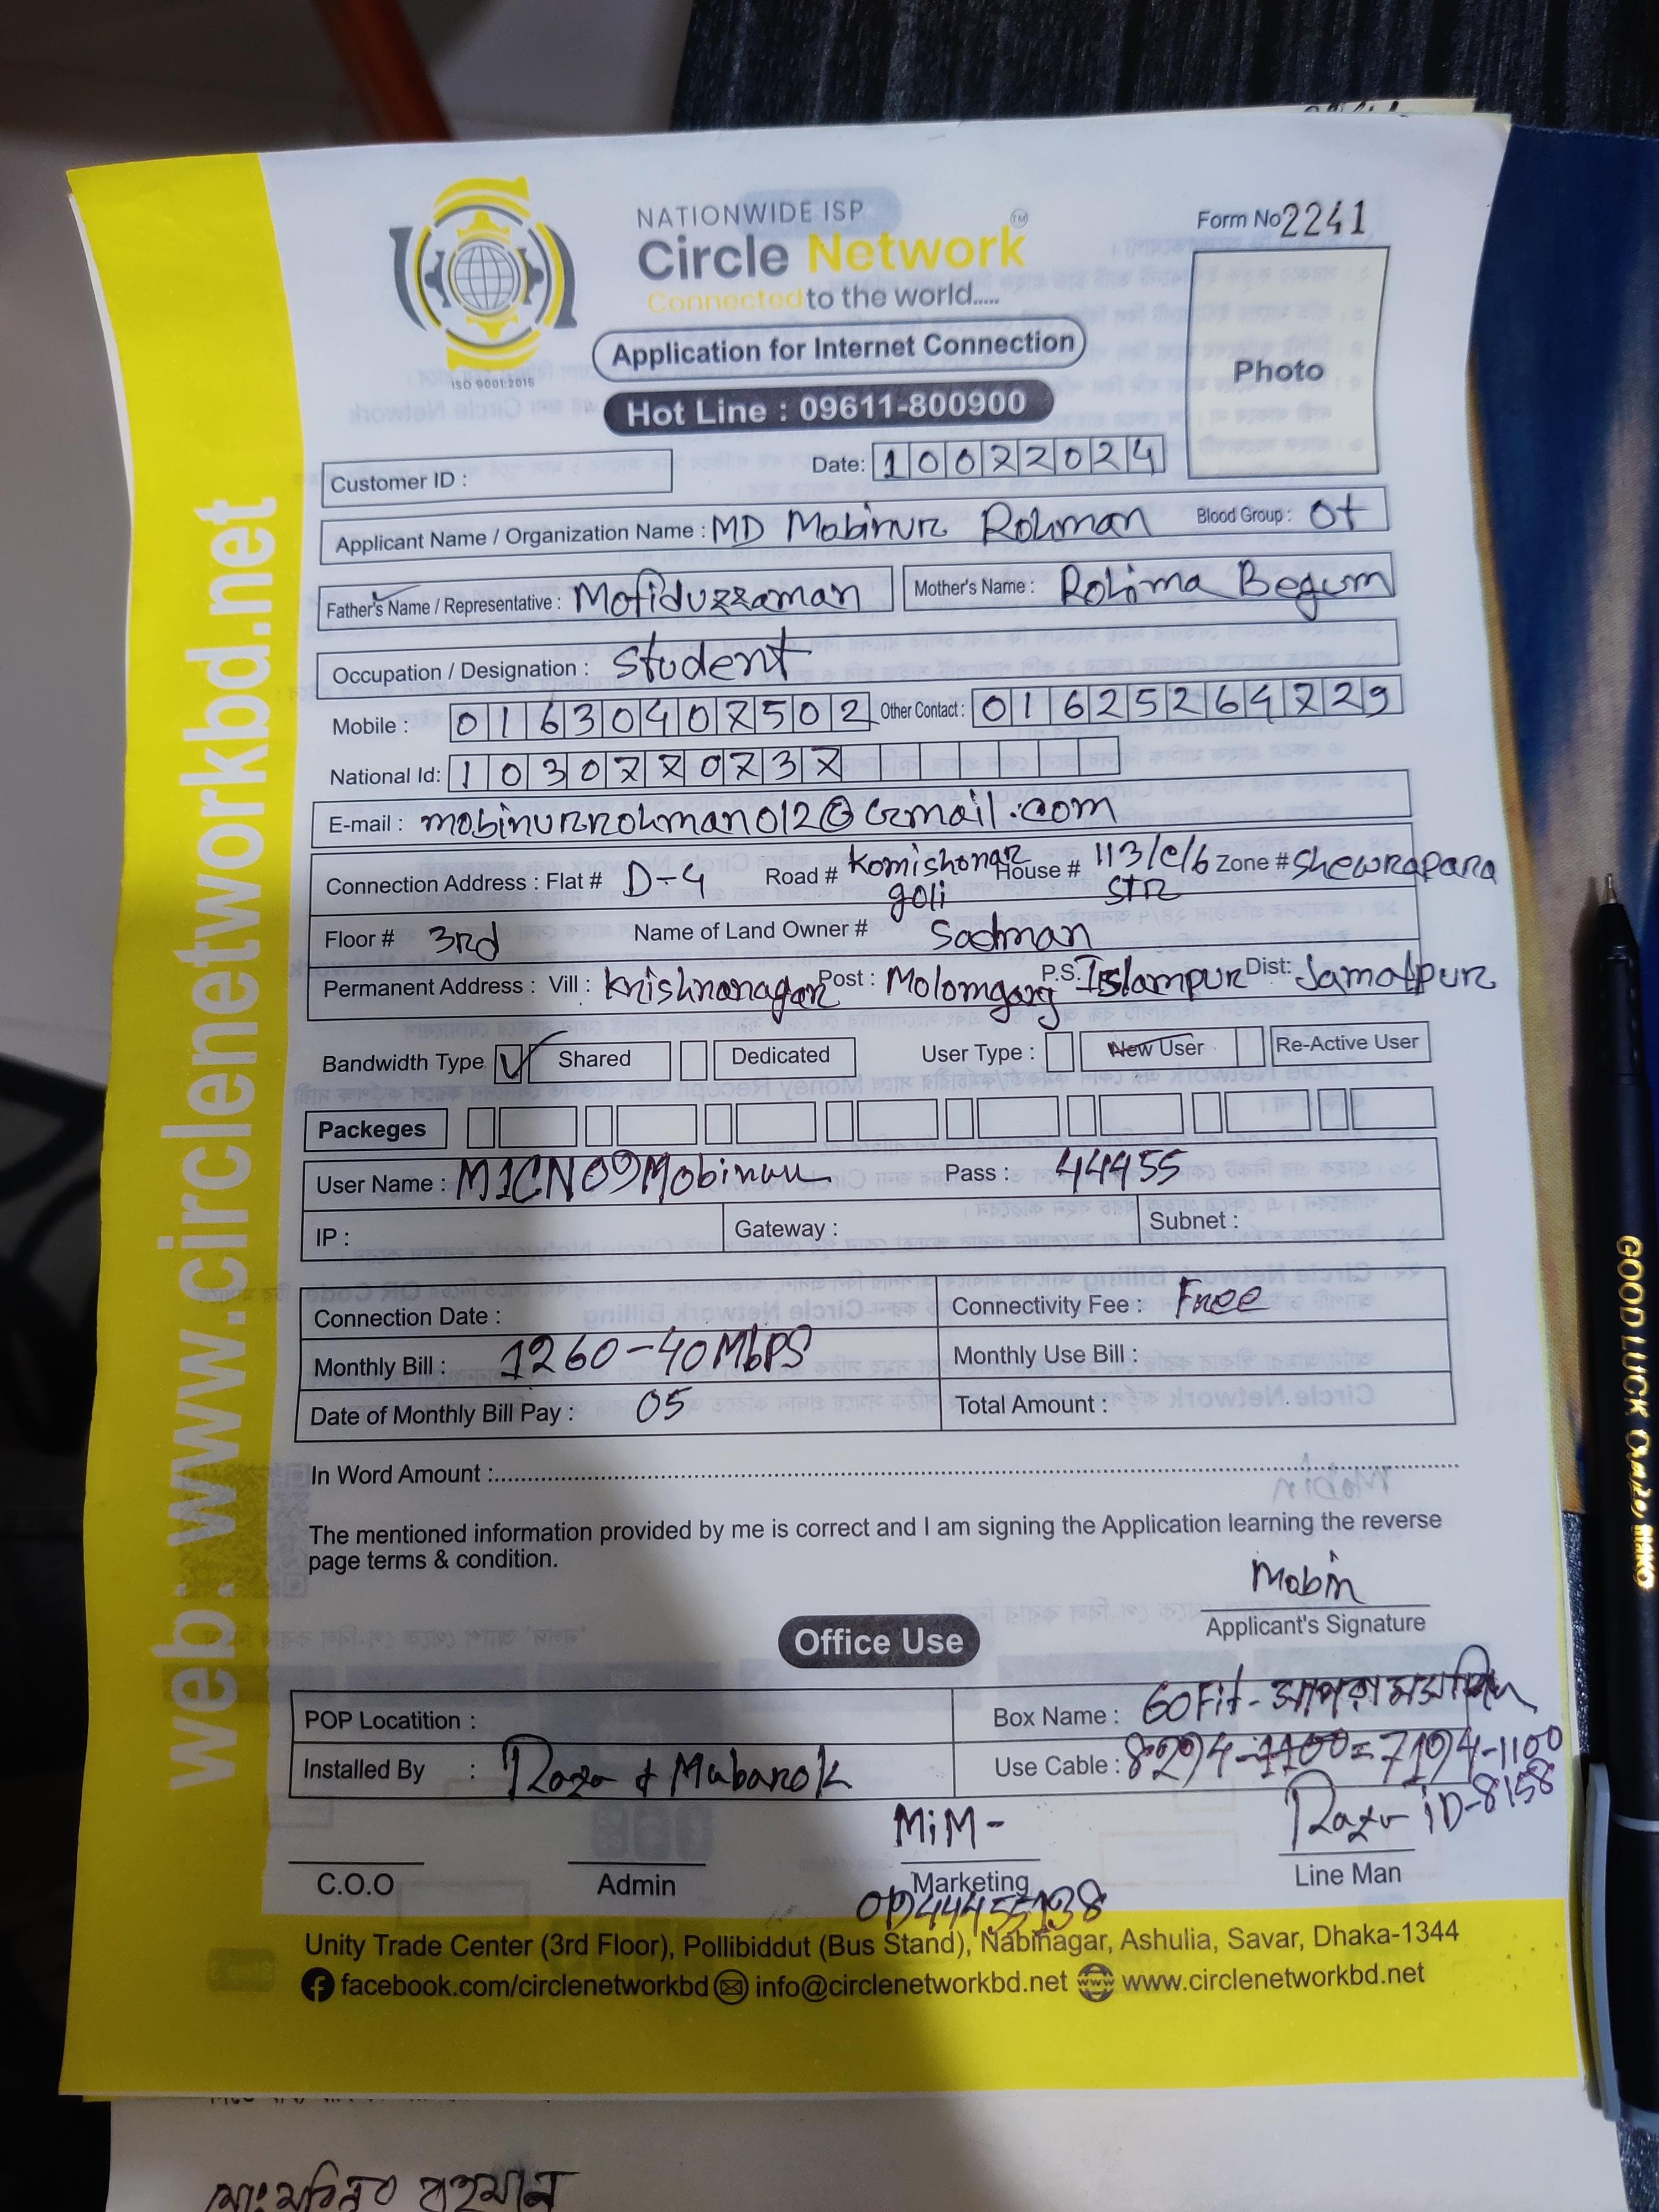 web: www.circlenetworkbd.net
ISO 9001:2015
NATIONWIDE ISP
Circle Network TM
Connected to the world.....
Application for Internet Connection
Hot Line : 09611-800900
Form No 2241
Photo
Customer ID :
Date: 10022024
Applicant Name / Organization Name : MD Mobinur Rohman Blood Group : O+
Father's Name / Representative : Mofiduzzaman Mother's Name : Rohima Begum
Occupation / Designation : Student
Mobile : 01630407502 Other Contact : 016252647229
National Id: 1030770737
E-mail : mobinurrohman012@Gmail.com
Connection Address : Flat # D-4 Road # Komishonar goli House # 113/c/6 STR Zone # Shewrapara
Floor # 3rd Name of Land Owner # Sadman
Permanent Address : Vill : Krishnanagar Post : Molomganj P.S. Islampur Dist: Jamalpur
Bandwidth Type Shared Dedicated User Type : New User Re-Active User
Packeges
User Name : M1CN09Mobinur Pass : 44455
IP : Gateway : Subnet :
Connection Date : Connectivity Fee : Free
Monthly Bill : 1260-40MbPS Monthly Use Bill :
Date of Monthly Bill Pay : 05 Total Amount :
In Word Amount :
The mentioned information provided by me is correct and I am signing the Application learning the reverse
page terms & condition.
Mobin
Applicant's Signature
Office Use
POP Locatition : Box Name : GOFit-
Installed By : Razu & Mubarok Use Cable : 8294-1100=7194-1100
MiM- Razu iD-8158
C.O.O Admin Marketing Line Man
Unity Trade Center (3rd Floor), Pollibiddut (Bus Stand), Nabinagar, Ashulia, Savar, Dhaka-1344
facebook.com/circlenetworkbd info@circlenetworkbd.net www www.circlenetworkbd.net
GOOD LUCK
মোঃ মবিনুর রহমান